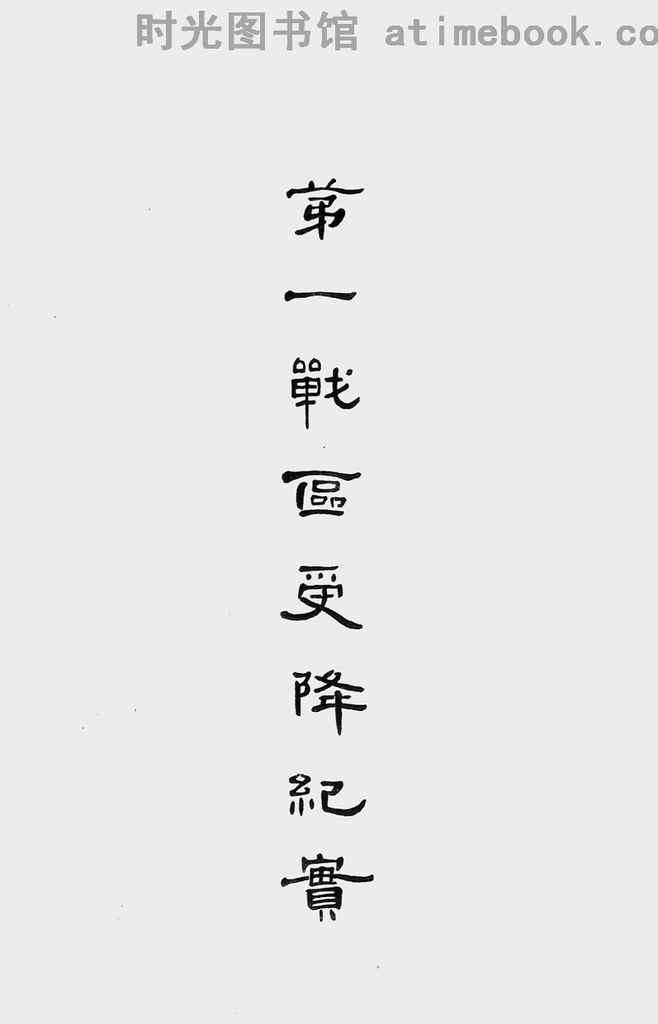 时光图书馆 atimebook.co
第一戰區受降紀實